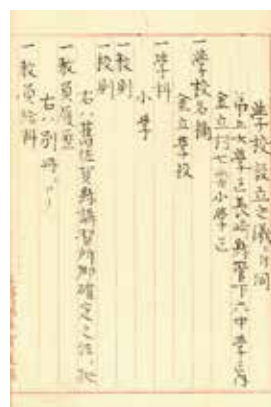 学校設立之儀ニ付伺
第五大学区長崎県管下六中学区内
金立村七番小学区
一学校名称
金立学校
一学科
小学
一教則
一校則
右ハ旧佐賀県講習所ニ即確定之法ニ従
一教員履歴
右ハ別呼
一教員給料